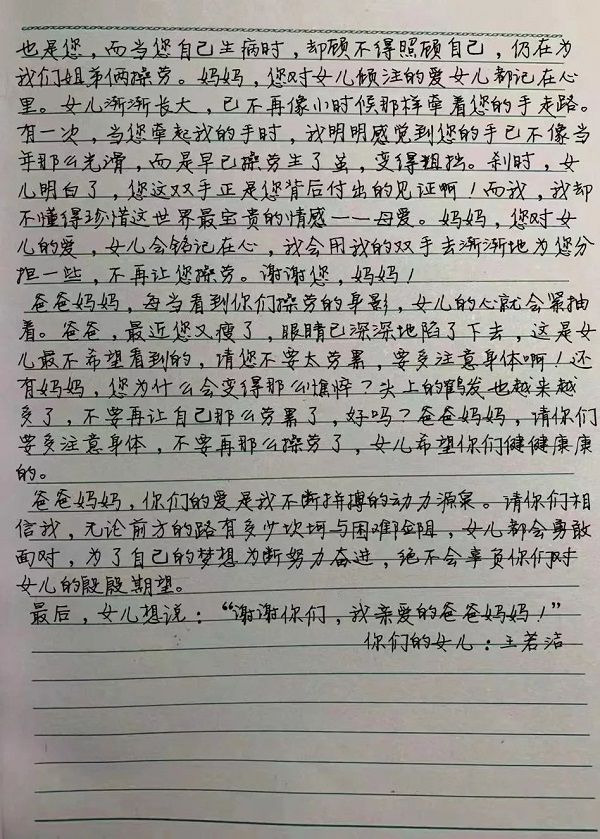 也是您，而当您自己生病时，却顾不得照顾自己，仍在为
我们姐弟俩操劳。妈妈，您对女儿倾注的爱女儿都记在心
里。女儿渐渐长大，已不再像小时候那样牵着您的手走路。
有一次，当您牵起我的手时，我明明感觉到您的手已不像当
年那么光滑，而是早已操劳生了茧，变得粗拙。刹时，女
儿明白了，您这双手正是您背后付出的见证啊！而我，我却
不懂得珍惜这世界最宝贵的情感——母爱。妈妈，您对女
儿的爱，女儿会铭记在心，我会用我的双手去渐渐地为您分
担一些，不再让您操劳。谢谢您，妈妈！
爸爸妈妈，每当看到你们操劳的身影，女儿的心就会紧抽
着。爸爸，最近您又瘦了，眼睛已深深地陷了下去，这是女
儿最不希望看到的，请您不要太劳累，要多注意身体啊！还
有妈妈，您为什么会变得那么憔悴？头上的鹤发也越来越
多了，不要再让自己那么劳累了，好吗？爸爸妈妈，请你们
要多注意身体，不要再那么操劳了，女儿希望你们健健康康
的。
爸爸妈妈，你们的爱是我不断拼搏的动力源泉。请你们相
信我，无论前方的路有多少坎坷与困难险阻，女儿都会勇敢
面对，为了自己的梦想为断努力奋进，绝不会辜负你们对
女儿的殷殷期望。
最后，女儿想说：“谢谢你们，我亲爱的爸爸妈妈！”
你们的女儿：王若洁